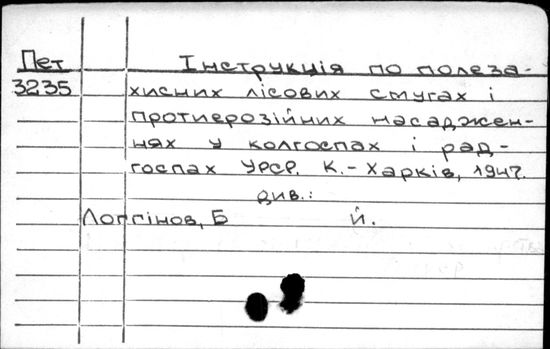 Пет
3235
Інструкція по полеза-
хисних лісових смугах і
протиерозійних насаджен-
нях у колгоспах і рад-
госпах УРСР. К.-Харків, 1947.
див.:
Логгінов, Б Й.